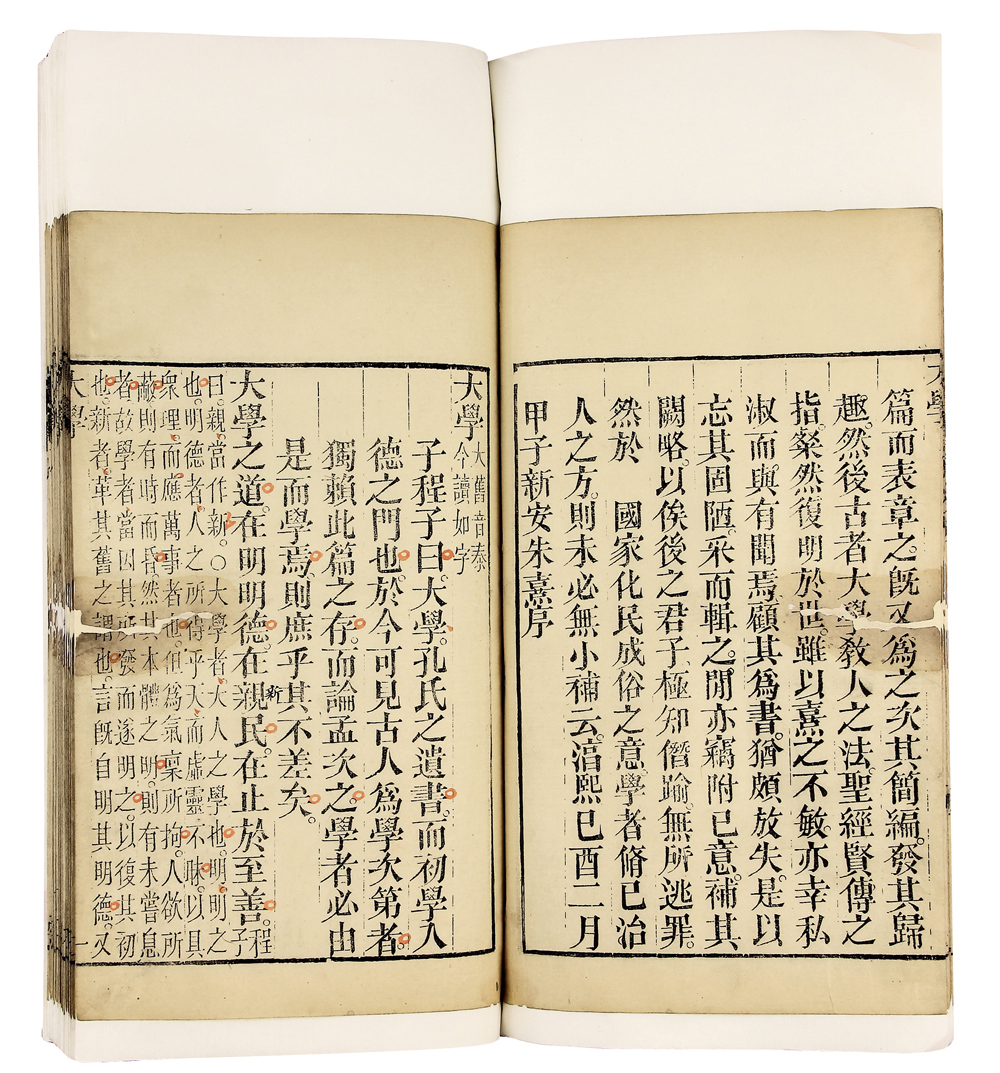 大學
篇而表章之。旣又爲之次其簡編。發其歸
趣。然後古者大學敎人之法。聖經賢傳之
指。粲然復明於世。雖以熹之不敏。亦幸私
淑而與有聞焉。顧其爲書。猶頗放失。是以
忘其固陋。采而輯之。閒亦竊附己意。補其
闕略。以俟後之君子。極知僭踰。無所逃罪。
然於　國家化民成俗之意。學者脩己治
人之方。則未必無小補云。淳熙己酉二月
甲子新安朱熹序
大學
大舊音泰
今讀如字
子程子曰。大學。孔氏之遺書。而初學入
德之門也。於今可見古人爲學次第者。
獨賴此篇之存。而論孟次之。學者必由
是而學焉。則庶乎其不差矣。
大學之道。在明明德。在親民。在止於至善。
新
程
子
曰。親。當作新。○大學者。大人之學也。明。明之
也。明德者。人之所得乎天。而虛靈不昧。以具
衆理。而應萬事者也。但爲氣稟所拘。人欲所
蔽。則有時而昏。然其本體之明。則有未嘗息
者。故學者當因其所發而遂明之。以復其初
也。新者。革其舊之謂也。言旣自明其明德。又
大學
一